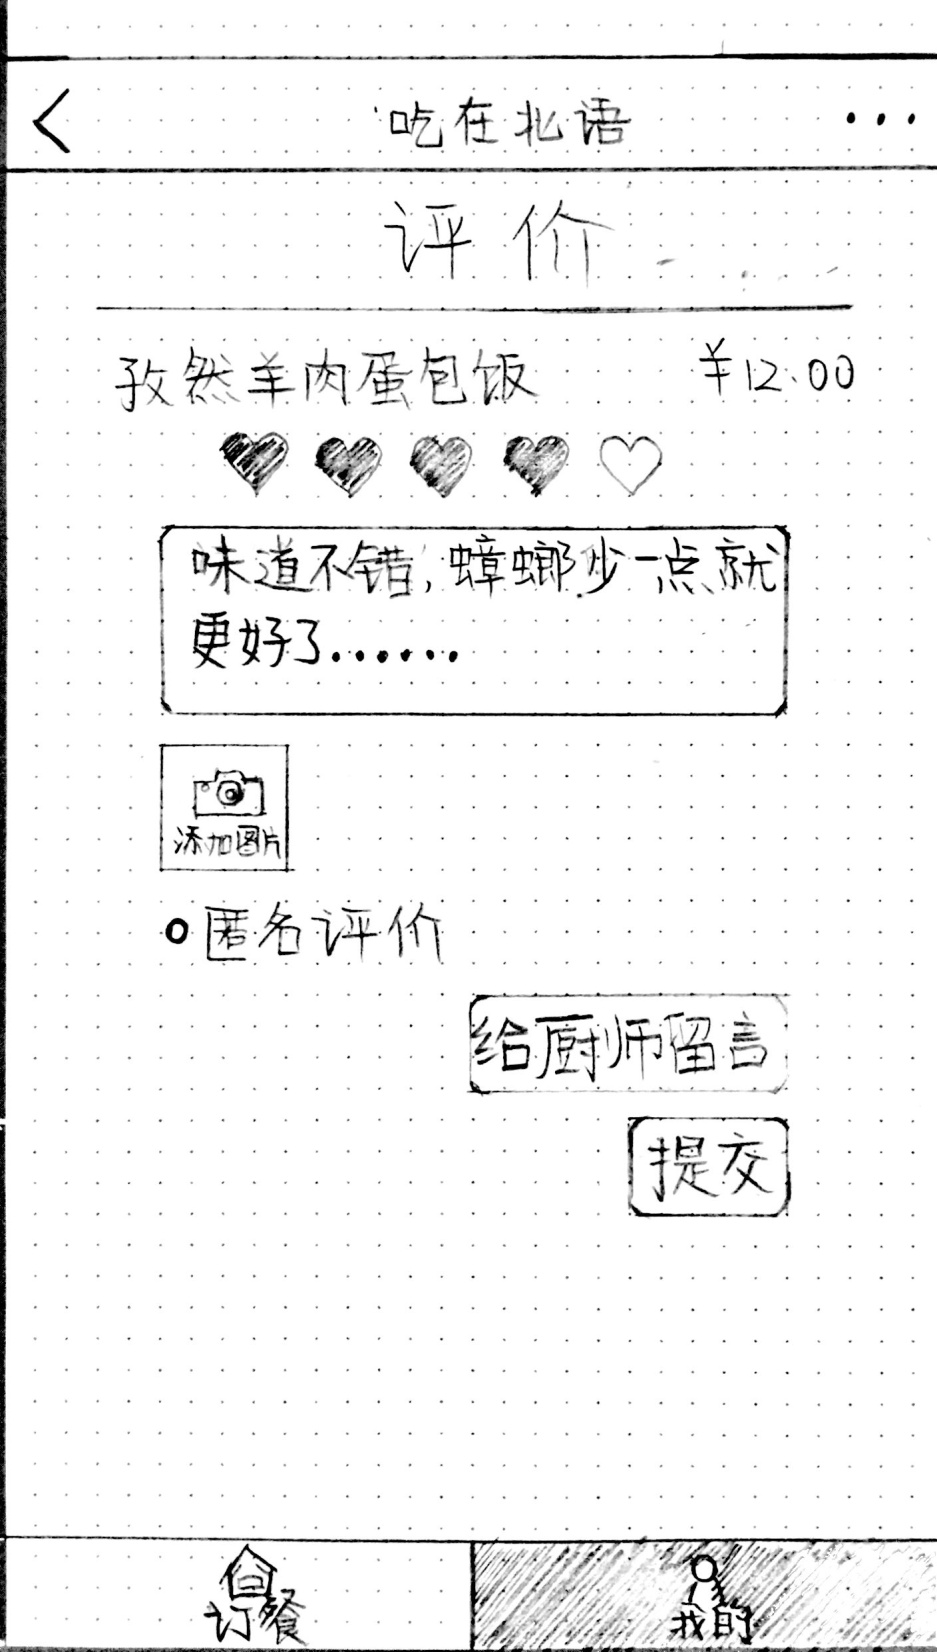 吃在北语
评价
孜然羊肉蛋包饭 ¥12.00
味道不错，蟑螂少一点就
更好了......
添加图片
匿名评价
给厨师留言
提交
订餐
我的